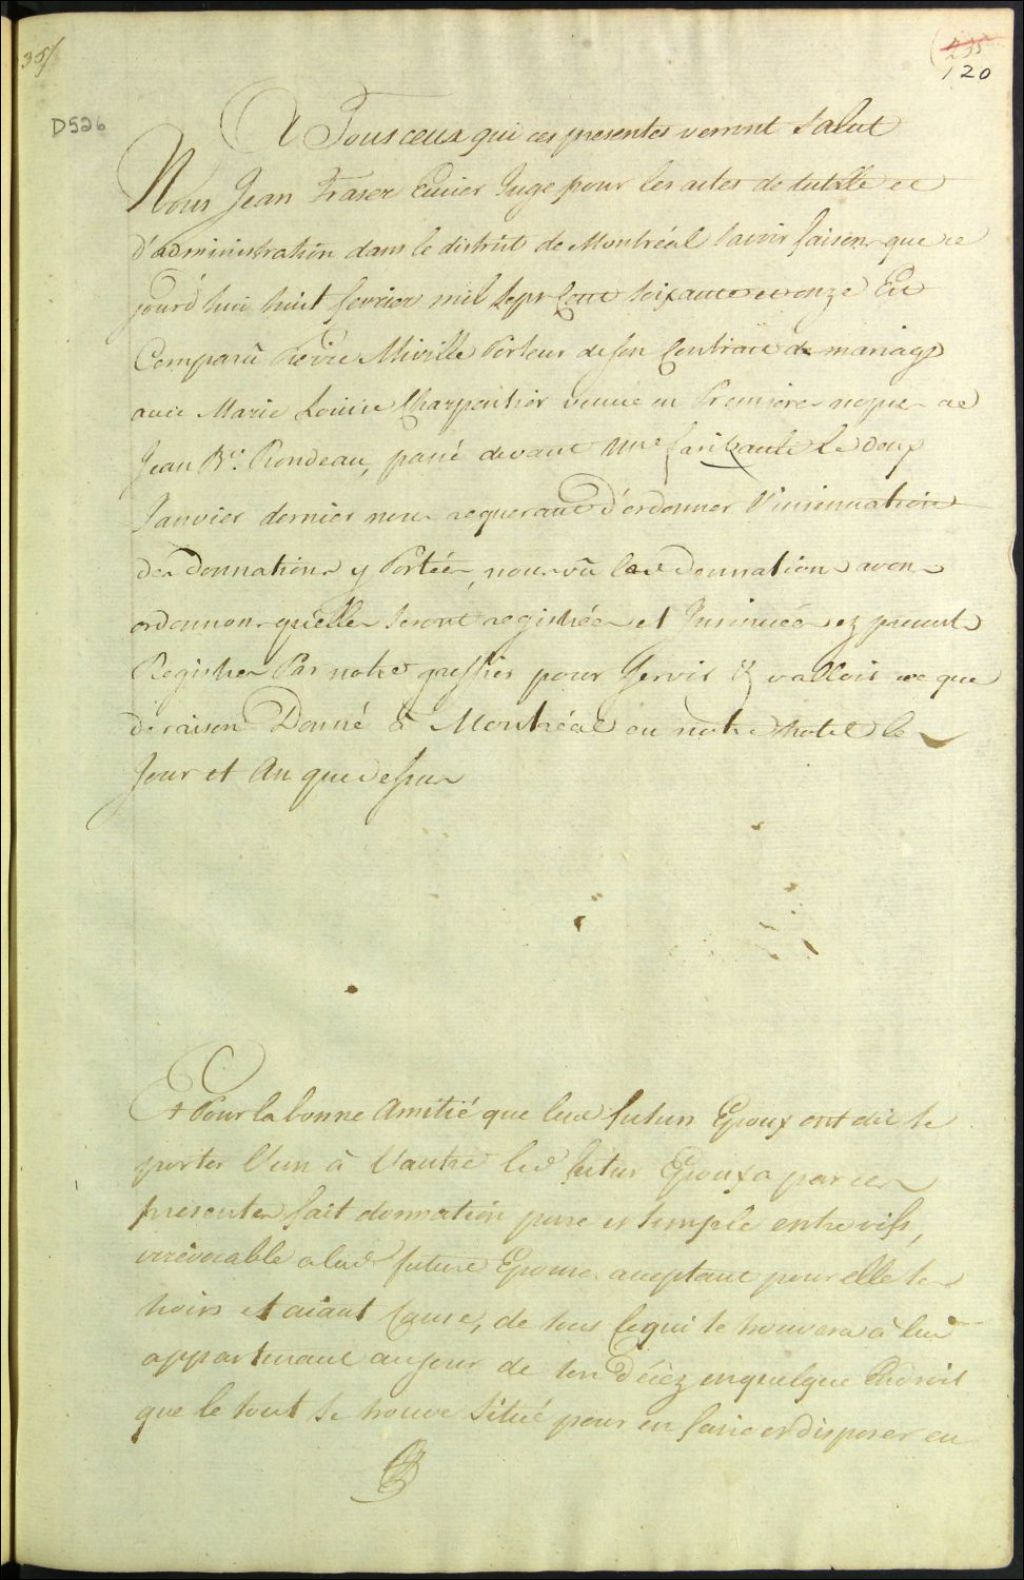 35/
235
120
D526
A Tous ceux qui ces presentes verront Salut
Nous Jean Fraser Ecuier Juge pour les actes de tutelle et
d'administration dans le district de Montréal savoir faisons que ce
jourd'hui huit fevrier mil Sept Cent soixante et onze Est
Comparû Pierre Miville Porteur de son Contract de mariage
avec Marie Louise Charpentier veuve en Premieres nopces de
Jean Bte. Rondeau, passé devant Mre faribault le douze
Janvier dernier nous requerant d'ordonner l'insinuation
des donnations y Portées, nous vû lesd donnations avons
ordonnons qu'elles seront registrées et Insinuées ez presents
Registres Par notre greffier pour Servir & valloir ce que
de raison Donné à Montréal en notre hotel le
Jour et An que dessus
Et Pour la bonne Amitié que lesd futurs Epoux ont dit se
porter l'un à l'autre led futur Epoux a par ces
presentes fait donnation pure et simple entre vifs,
irrévocable a lad future Epouse acceptant pour elle ses
hoirs et aiant Cause, de tout ce qui se trouvera à lui
appartenant au jour de son Décez en quelque Endroit
que le tout se trouve Situé pour en faire et disposer en